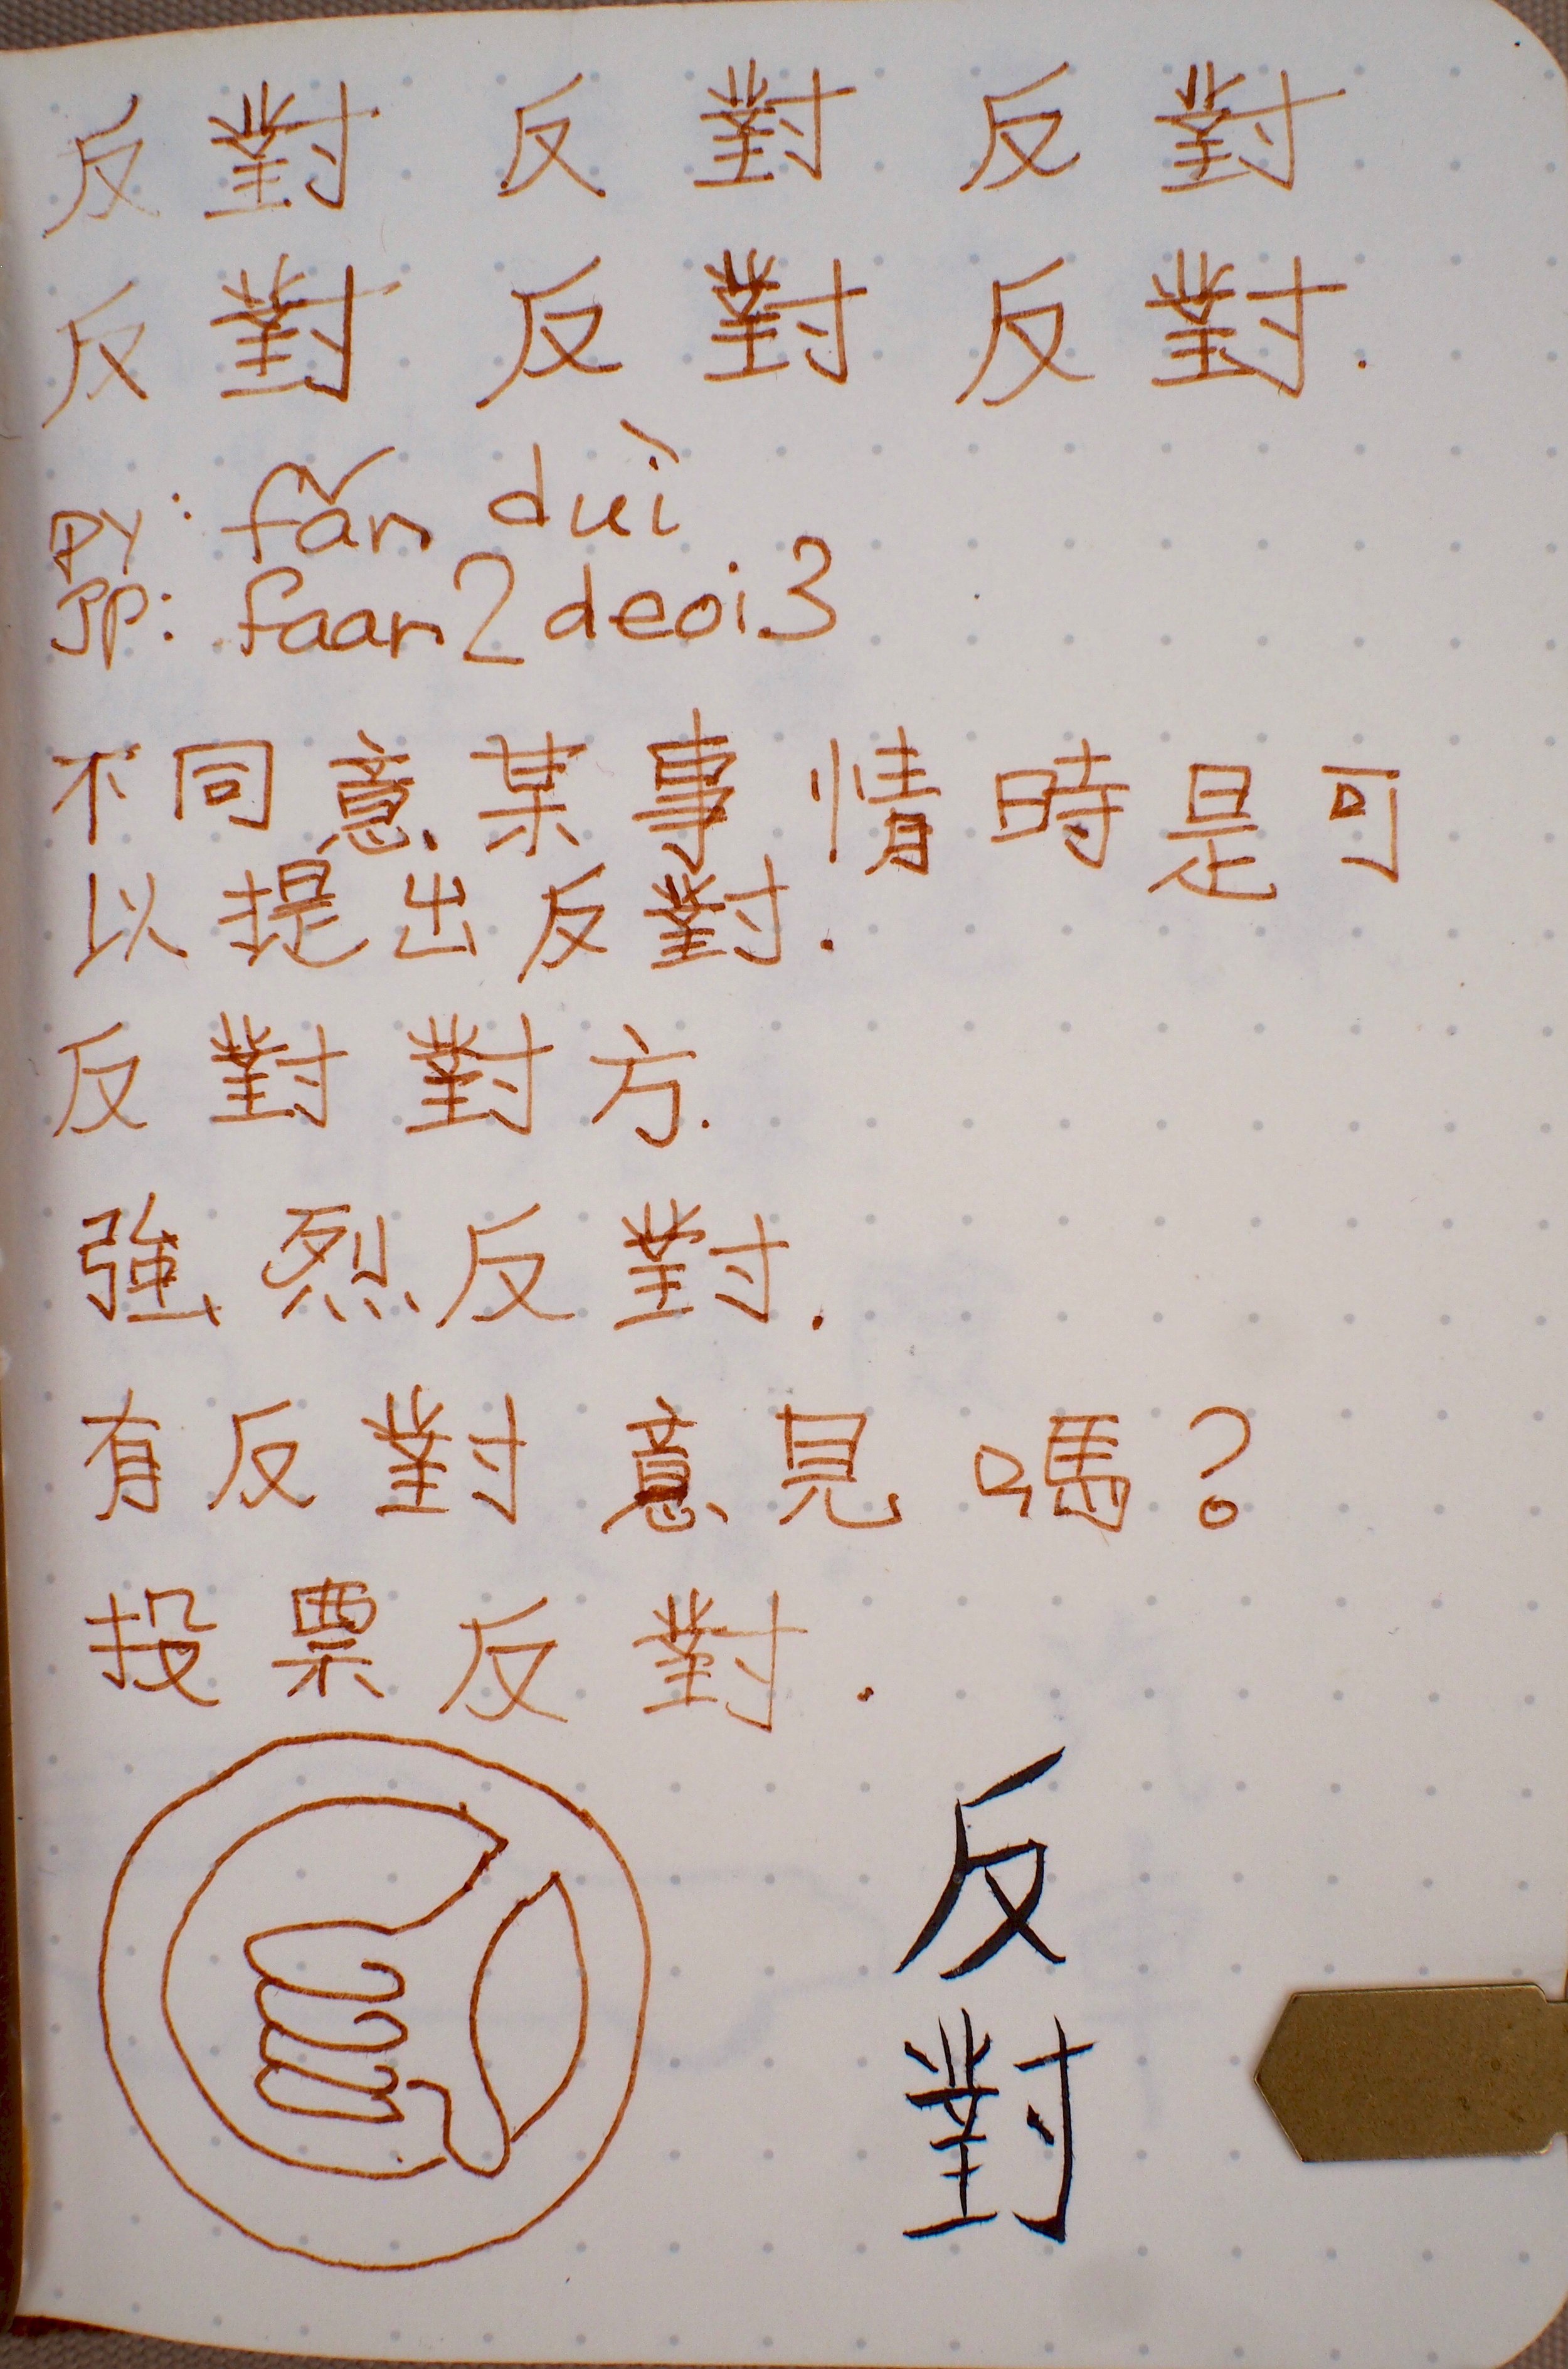 反對 反對 反對
反對 反對 反對.
PY: fǎn duì
JP: faan2 deoi3
不同意某事情時是可
以提出反對.
反對對方.
強烈反對.
有反對意見嗎?
投票反對.
反
對